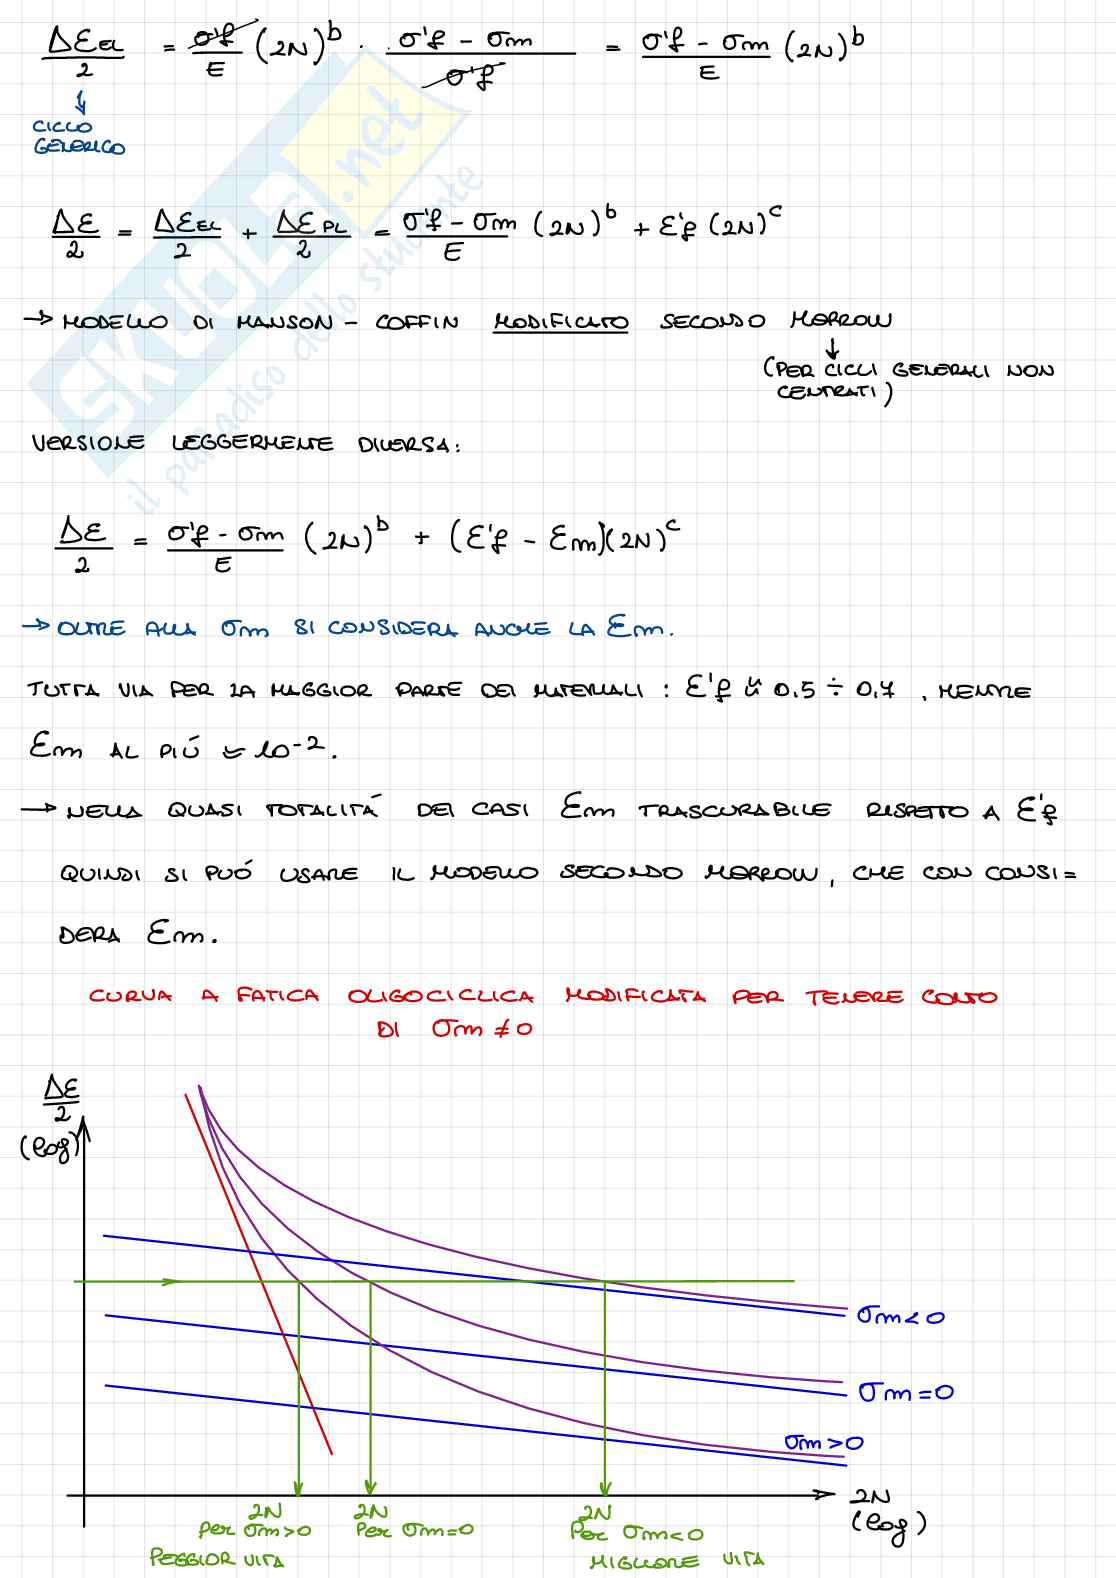 Δε_EL/2 = σ'f/E (2N)^b · σ'f - σm/σ'f = σ'f - σm/E (2N)^b
CICLO
GENERICO
Δε/2 = Δε_EL/2 + Δε_PL/2 = σ'f - σm/E (2N)^b + ε'f (2N)^c
→ MODELLO DI MANSON - COFFIN MODIFICATO SECONDO MORROW
(PER CICLI GENERALI NON
CENTRATI)
VERSIONE LEGGERMENTE DIVERSA:
Δε/2 = σ'f - σm/E (2N)^b + (ε'f - εm)(2N)^c
→ OLTRE ALLA σm SI CONSIDERA ANCHE LA εm.
TUTTA VIA PER LA MAGGIOR PARTE DEI MATERIALI: ε'f ≃ 0.5 ÷ 0.7, MENTRE
εm AL PIÚ ≃ 10^-2.
→ NELLA QUASI TOTALITÁ DEI CASI εm TRASCURABILE RISPETTO A ε'f
QUINDI SI PUÓ USARE IL MODELLO SECONDO MORROW, CHE CON CONSI=
DERA εm.
CURVA A FATICA OLIGOCICLICA MODIFICATA PER TENERE CONTO
DI σm ≠ 0
Δε/2
(log)
σm<0
σm=0
σm>0
2N
(log)
2N
per σm>0
PEGGIOR VITA
2N
per σm=0
2N
per σm<0
MIGLIORE VITA
SKUOLA.net
il paradiso dello studente